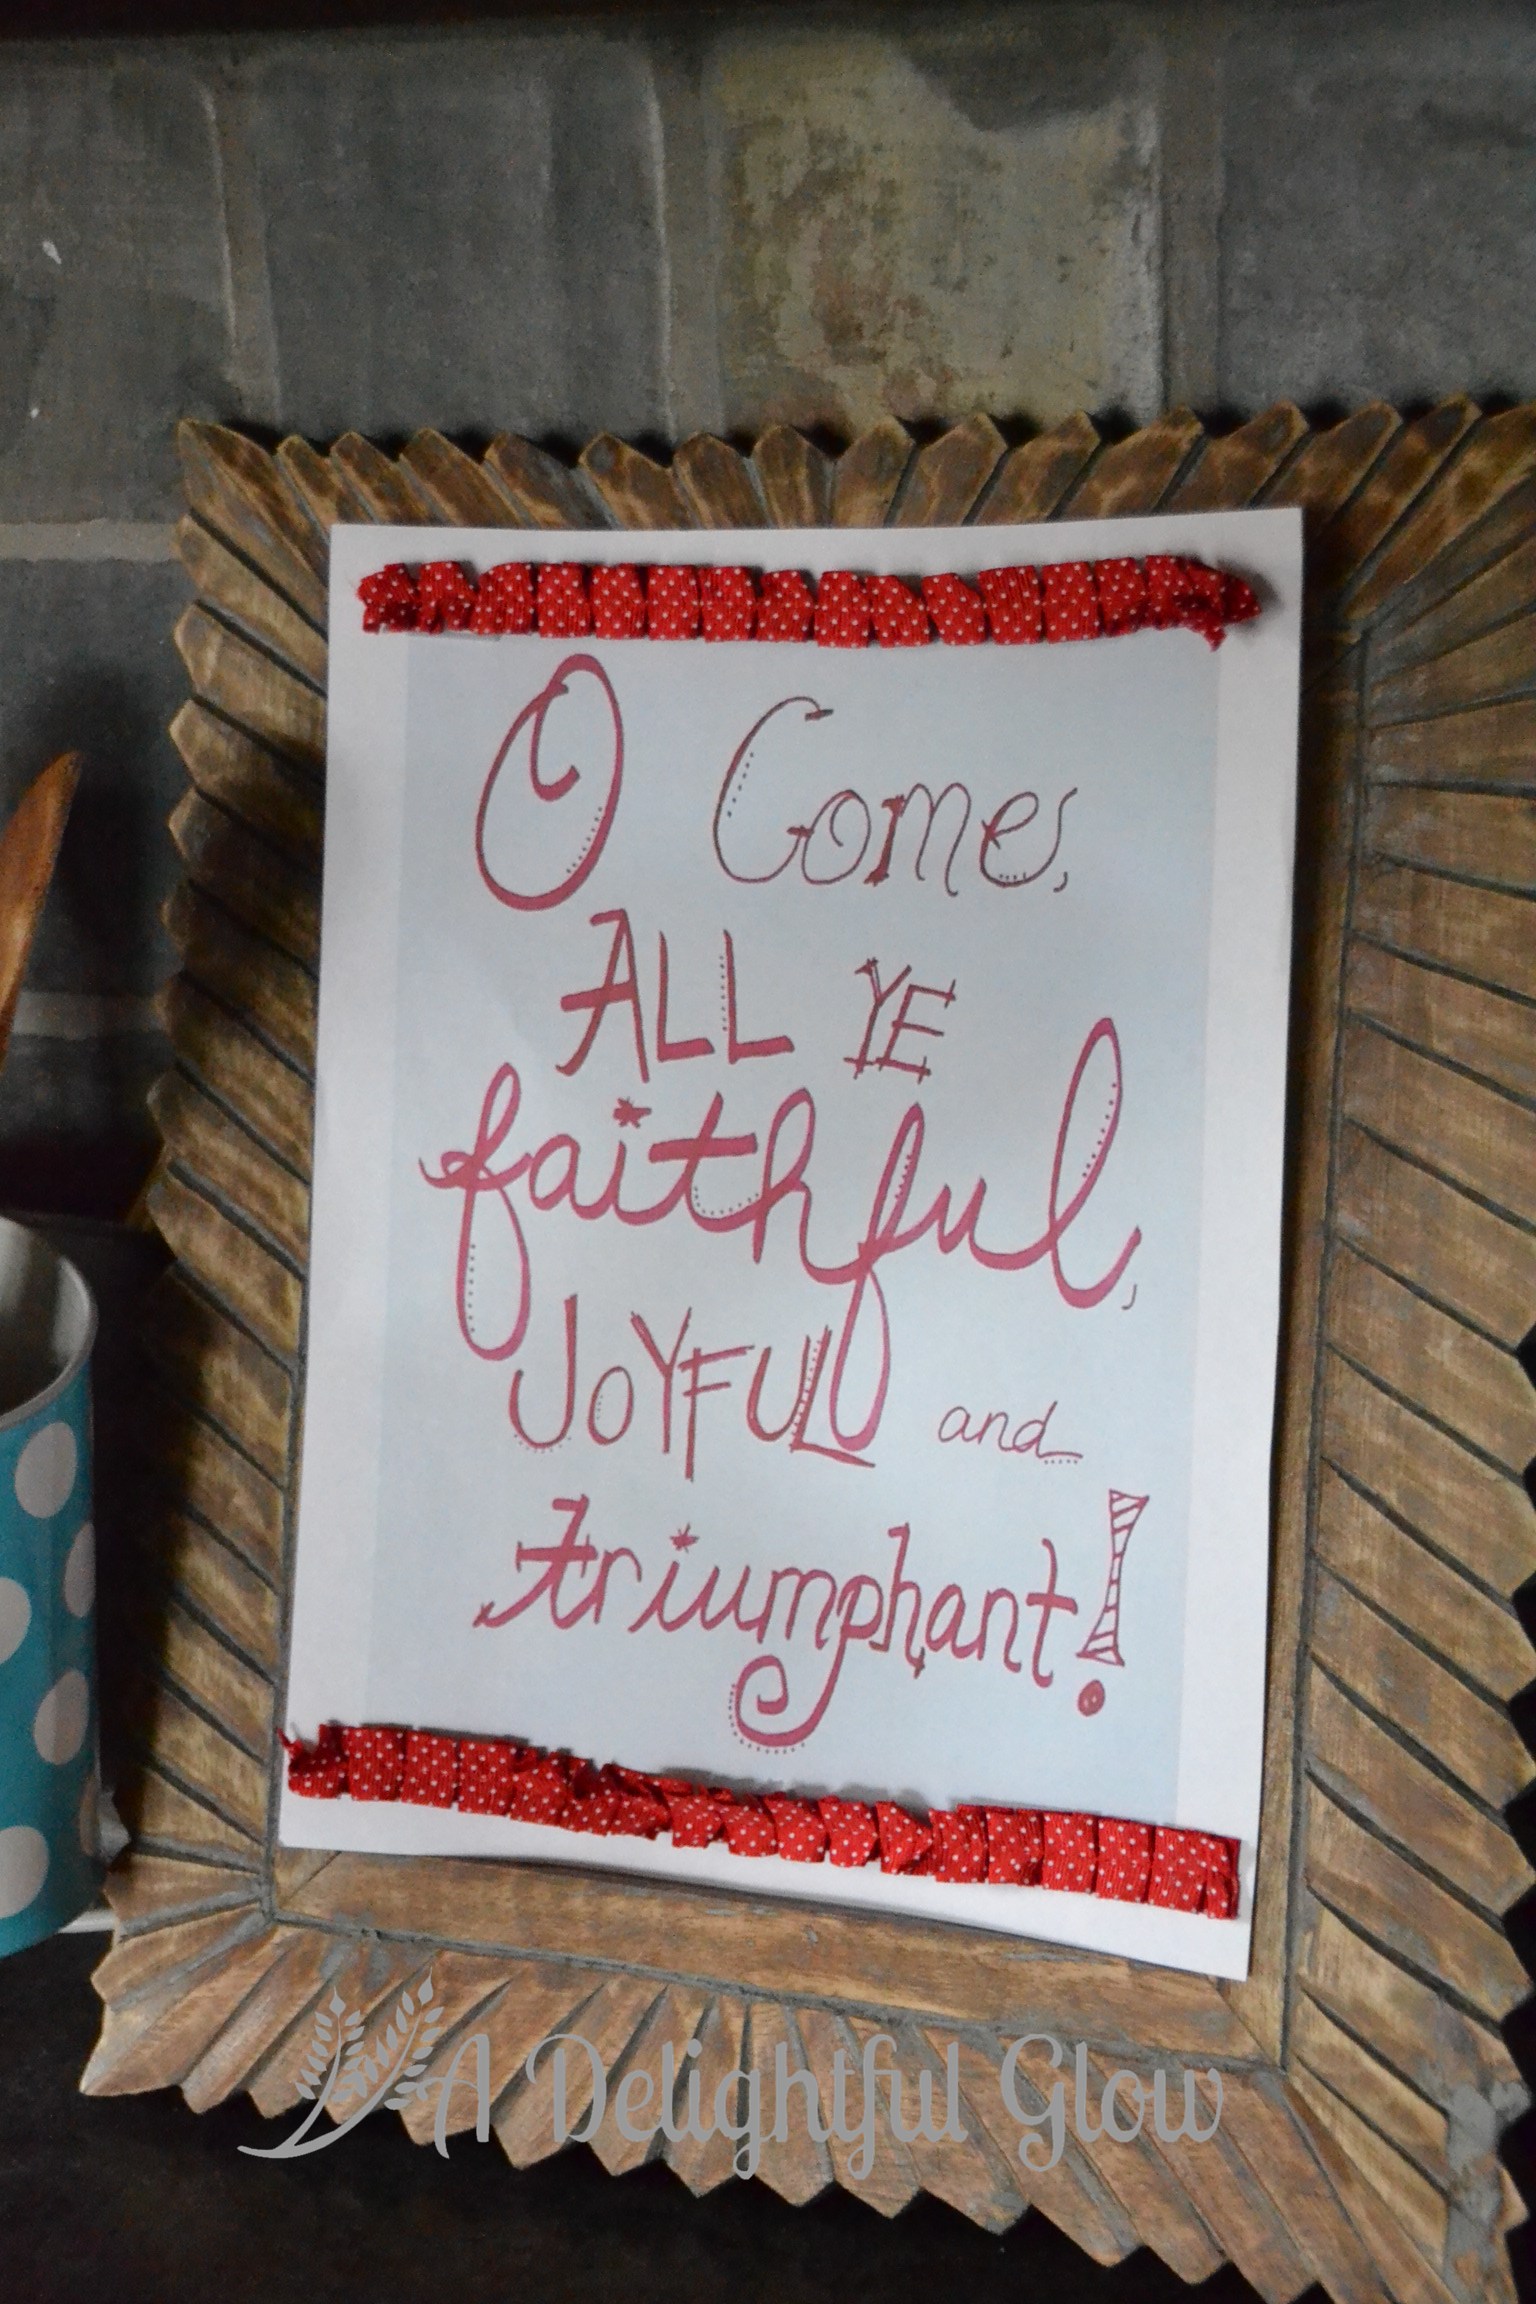 O Come,
ALL YE
faithful,
JOYFUL and
triumphant!
A Delightful Glow